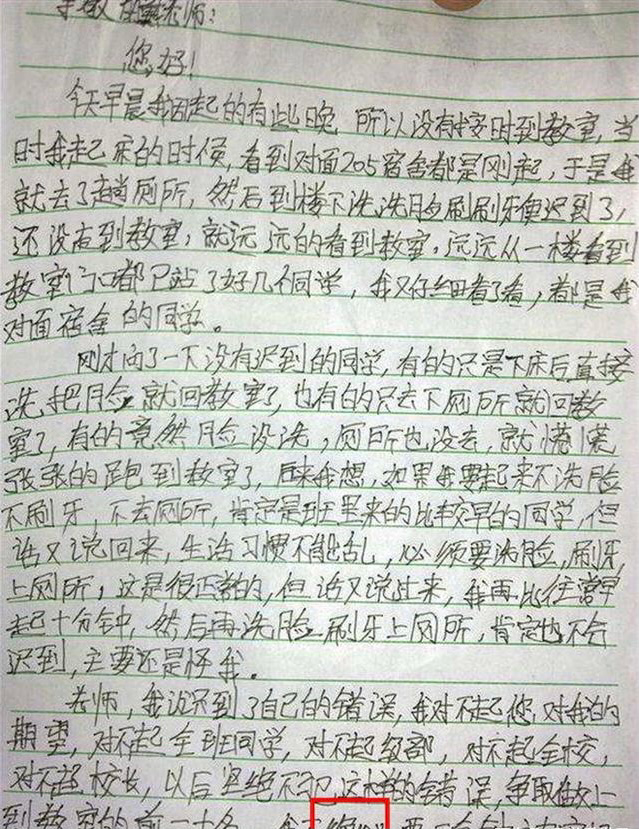 老师:
您好!
今天早晨我因起的有些晚 所以没有按时到教室,当
时我起床的时侯,看到对面205宿舍都是刚起,于是我
就去了趟厕所,然后到楼下洗洗脸刷刷牙便迟到了,
还没有到教室,就远远的看到教室,远远从一楼看到
教室门口都已站了好几个同学,我又仔细看了看,都是我
对面宿舍的同学。
刚才问了一下没有迟到的同学,有的只是下床后直接
洗把脸就回教室了,也有的只去下厕所就回教
室了,有的竟然脸没洗,厕所也没去,就慌慌
张张的跑到教室了,后来我想,如果我要起来不洗脸
不刷牙,不去厕所,肯定是班里来的比较早的同学,但
话又说回来,生活习惯不能乱,必须要洗脸,刷牙,
上厕所,这是很正常的,但话又说过来,我再比往常早
起十分钟,然后再洗脸刷牙上厕所,肯定也不会
迟到,主要还是怪我。
老师,我认识到了自己的错误,我对不起您,对我的
期望,对不起全班同学,对不起级部,对不起全校,
对不起校长,以后坚绝不犯这样的错误,争取做上
到教室的前二十名